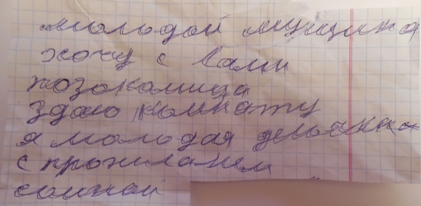 молодой мущина
хочу с вами
позокомица
здаю комнату
я молодая девочка
с проживанем
сомной